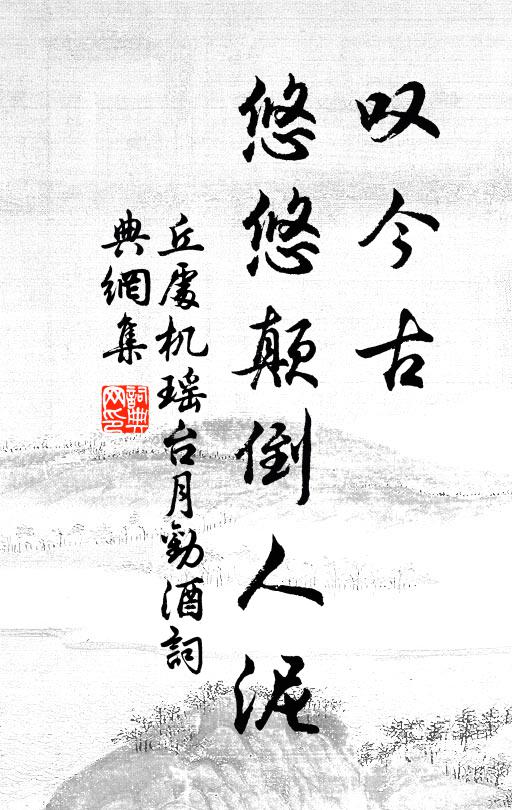 叹今古
悠悠颠倒人泥
丘處机瑶台月勸酒詞
典網集
詞典
网印